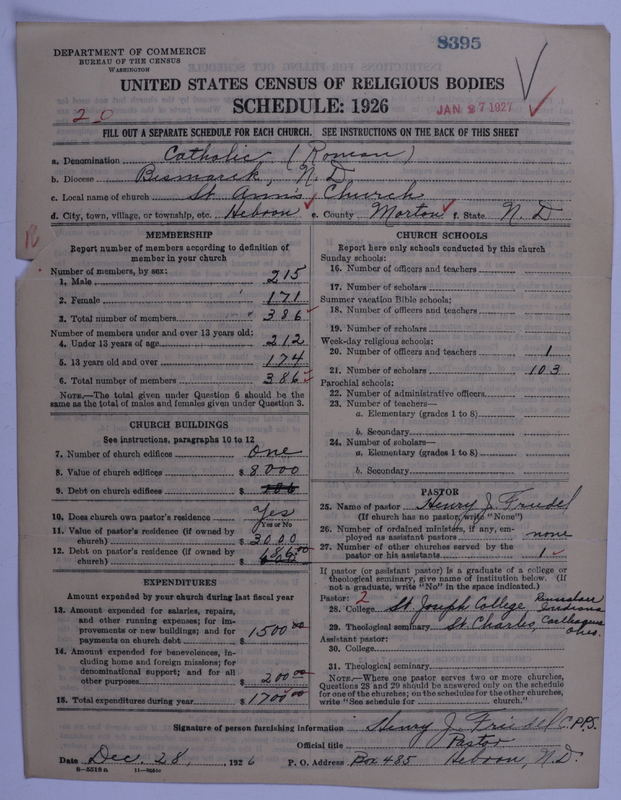 8395
DEPARTMENT OF COMMERCE
BUREAU OF THE CENSUS
WASHINGTON
UNITED STATES CENSUS OF RELIGIOUS BODIES
SCHEDULE: 1926
JAN 27 1927
20
FILL OUT A SEPARATE SCHEDULE FOR EACH CHURCH. SEE INSTRUCTIONS ON THE BACK OF THIS SHEET
a. Denomination Catholic (Roman)
b. Diocese Bismarck, N.D
c. Local name of church St. Ann's Church
d. City, town, village, or township, etc. Hebron e. County Morton f. State N. D
MEMBERSHIP
Report number of members according to definition of
member in your church
Number of members, by sex:
1. Male 215
2. Female 171
3. Total number of members 386
Number of members under and over 13 years old:
4. Under 13 years of age 212
5. 13 years old and over 174
6. Total number of members 386
NOTE.—The total given under Question 6 should be
the same as the total of males and females given under Question 3.
CHURCH BUILDINGS
See instructions, paragraphs 10 to 12
7. Number of church edifices one
8. Value of church edifices $ 8000
9. Debt on church edifices $
10. Does church own pastor's residence yes
Yes or No
11. Value of pastor's residence (if owned by
church) $ 3000
12. Debt on pastor's residence (if owned by
church) $ 686.00
EXPENDITURES
Amount expended by your church during last fiscal year
13. Amount expended for salaries, repairs,
and other running expenses; for im-
provements or new buildings; and for
payments on church debt $ 1500.00
14. Amount expended for benevolences, in-
cluding home and foreign missions; for
denominational support; and for all
other purposes $ 200.00
15. Total expenditures during year $ 1700.00
CHURCH SCHOOLS
Report here only schools conducted by this church
Sunday schools:
16. Number of officers and teachers
17. Number of scholars
Summer vacation Bible schools:
18. Number of officers and teachers
19. Number of scholars
Week-day religious schools:
20. Number of officers and teachers 1
21. Number of scholars 103
Parochial schools:
22. Number of administrative officers
23. Number of teachers—
a. Elementary (grades 1 to 8)
b. Secondary
24. Number of scholars—
a. Elementary (grades 1 to 8)
b. Secondary
PASTOR
25. Name of pastor Henry J. Friedel
(If church has no pastor, write "None")
26. Number of ordained ministers, if any, em-
ployed as assistant pastors none
27. Number of other churches served by the
pastor or his assistants 1
If pastor (or assistant pastor) is a graduate of a college or
theological seminary, give name of institution below. (If
not a graduate, write "No" in the space indicated.)
Pastor: 2
28. College St. Joseph College, Rensselaer Indiana
29. Theological seminary St. Charles, Carthagena Ohio.
Assistant pastor:
30. College
31. Theological seminary
NOTE.—Where one pastor serves two or more churches,
Questions 28 and 29 should be answered only on the schedule
for one of the churches; on the schedules for the other churches,
write "See schedule for church."
Signature of person furnishing information Henry J. Friedel C.PP.S.
Official title Pastor
Date Dec. 28, 1926 P. O. Address Box 485 Hebron, N.D.
8—5518 a